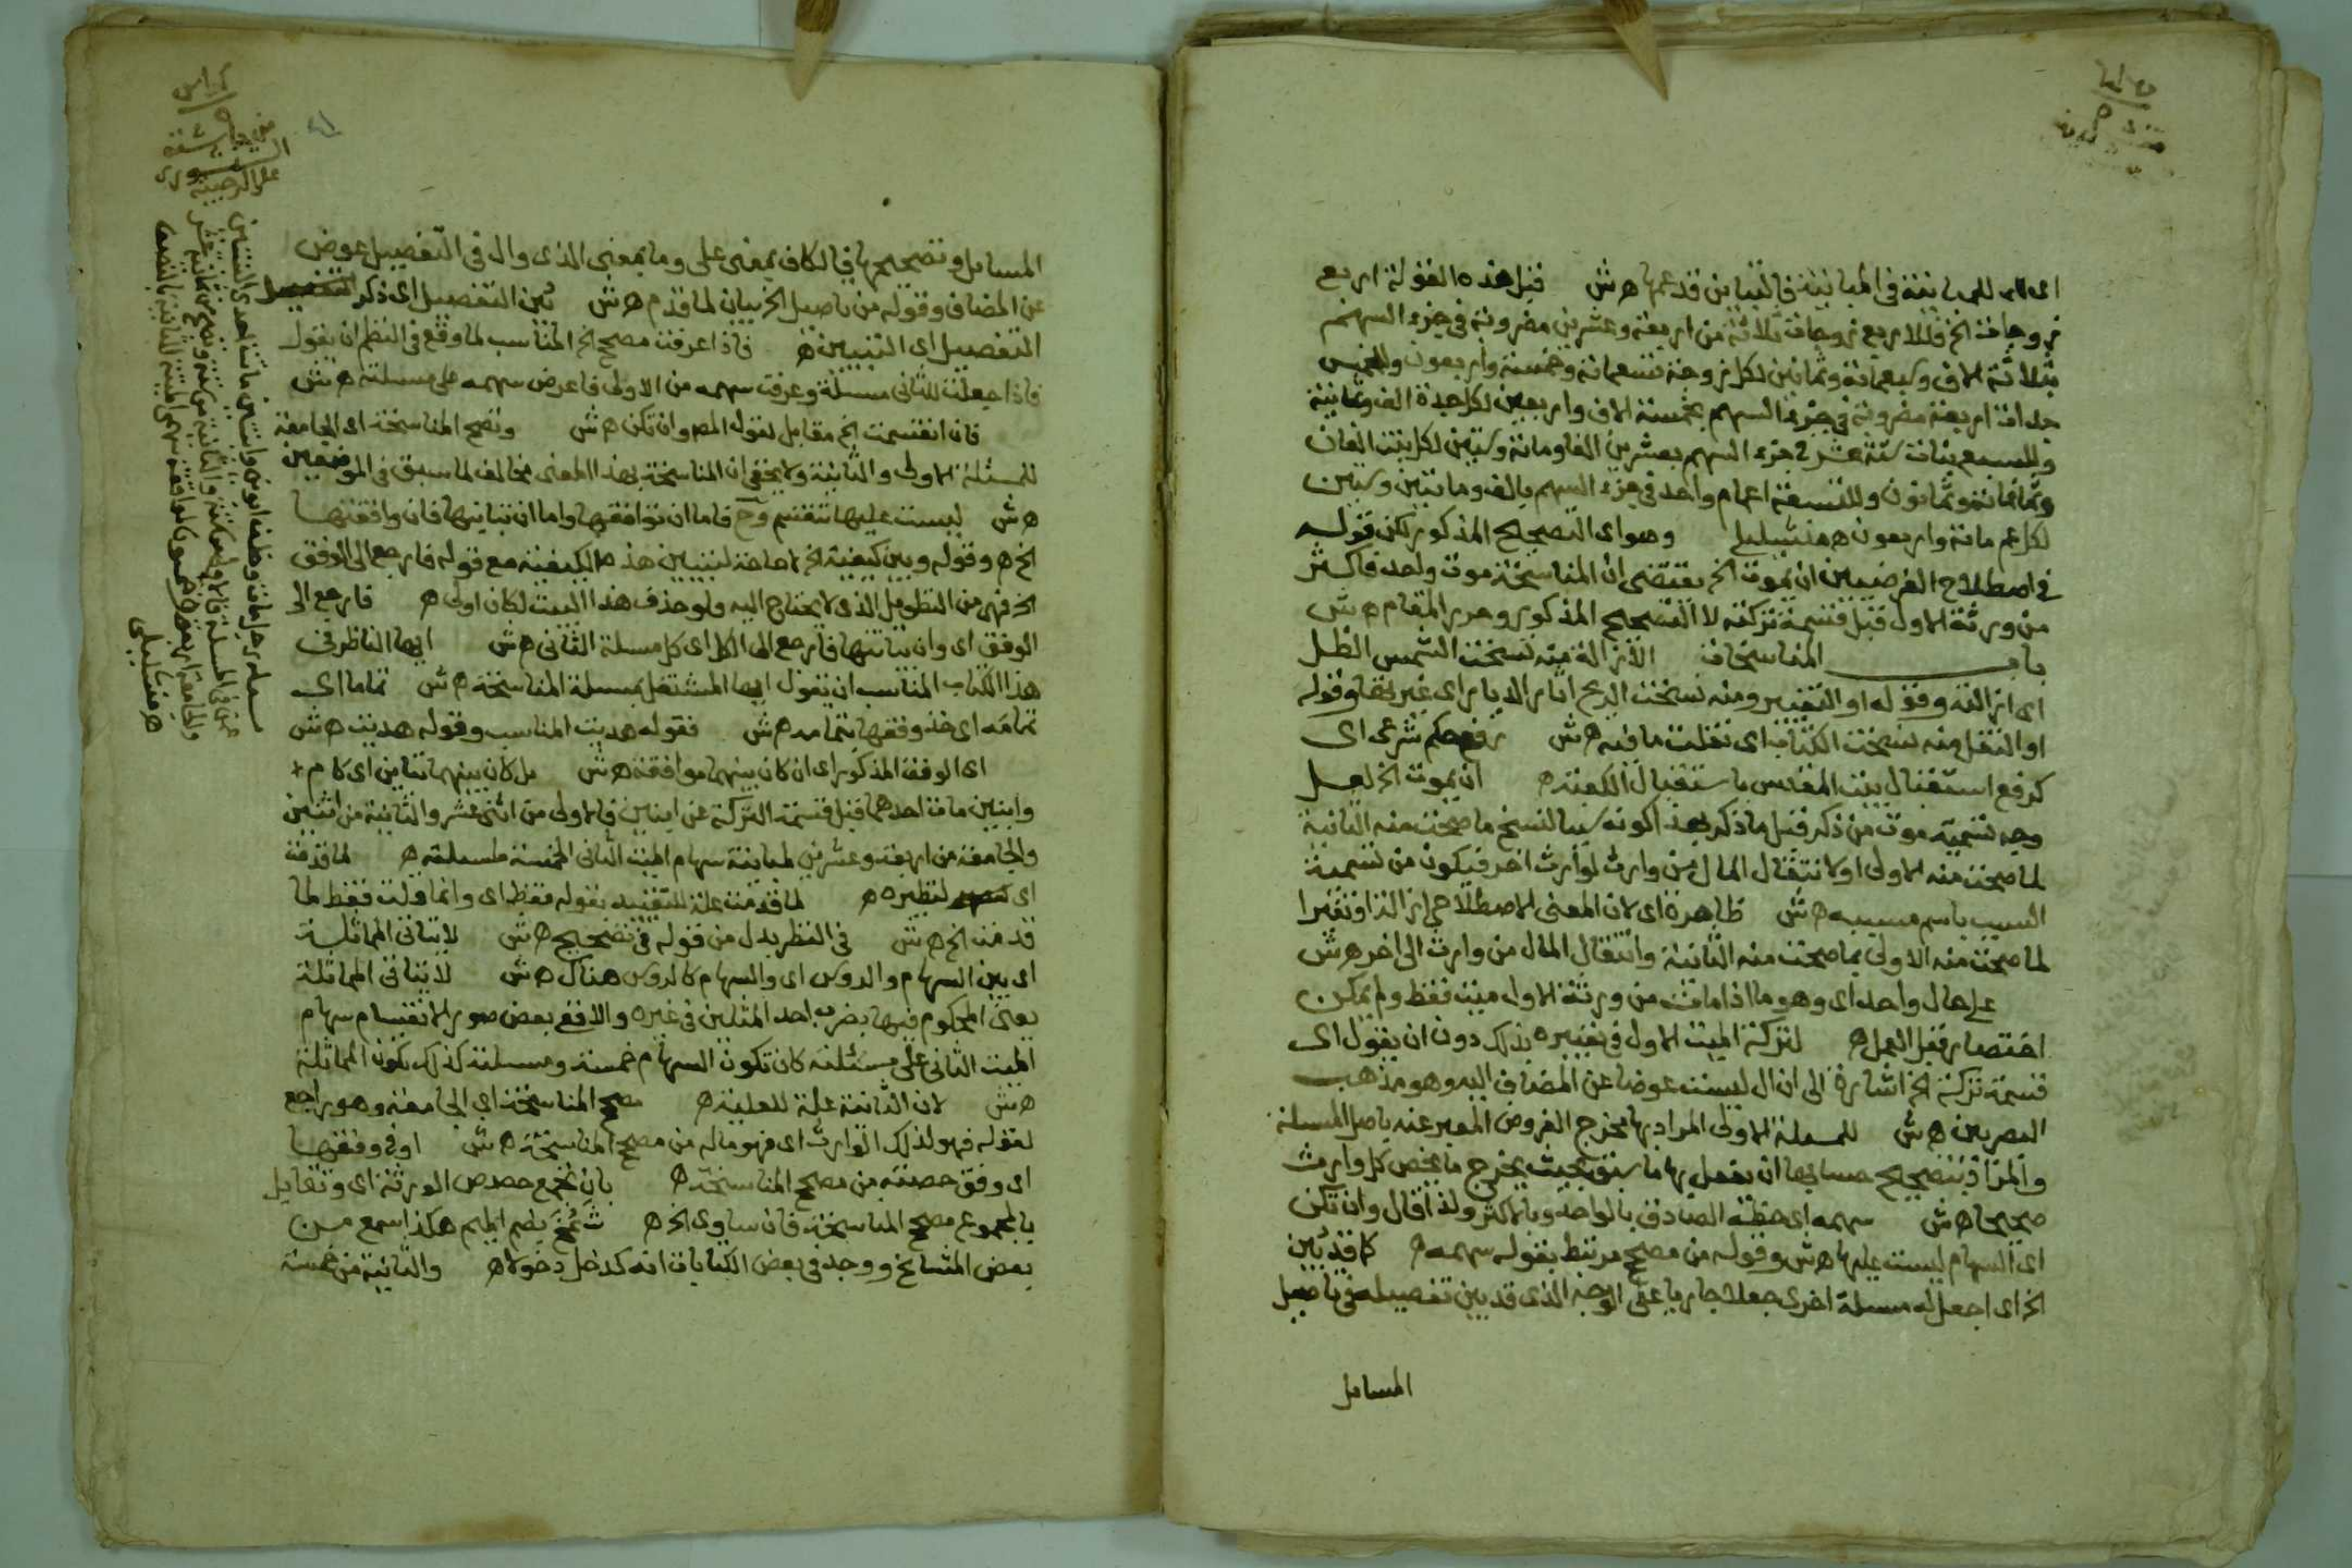 اى للمباينة فى المباينة فالتباين قد عمها ه ش قبل هذه القولة اربع
زوجات الخ فللاربع زوجات ثلاثة من اربعة وعشرين مضروبة فى جزء السهم
بثلاثة الاف وسبعمائة وثمانين لكل زوجة تسعمائة وخمسة واربعون وللخمس
جدات اربعة مضروبة فى جزء السهم بخمسة الاف واربعين لكل جدة الف وثمانية
وللسبع بنات ستة عشر فى جزء السهم بعشرين الفا ومائة وستين لكل بنت الفان
وثمانمائة وثمانون وللتسعة اعمام واحد فى جزء السهم بالف ومائتين وستين
لكل عم مائة واربعون ه وهو اى التصحيح المذكور لكن قوله
فى اصطلاح الفرضيين ان يموت الخ يقتضى ان المناسخة موت واحد فاكثر
من ورثة الاول قبل قسمة تركته لا التصحيح المذكور وحرر المقام ه ش
باب المناسخات الازالة منه نسخت الشمس الظل
اى ازالته وقوله او التغيير ومنه نسخت الريح اثار الديار اى غيرتها وقوله
او النقل ومنه نسخت الكتاب اى نقلت ما فيه ه ش رفع حكم شرعى اى
كرفع استقبال بيت المقدس باستقبال الكعبة ه ان يموت الخ لعل
وجه تسمية موت من ذكر قبل ما ذكر بهذا كونه سببا لنسخ ما صحت منه الثانية
لما صحت منه الاولى او لانتقال المال من وارث لوارث اخر فيكون من تسمية
السبب باسم مسببه ه ش ظاهرة اى لان المعنى الاصطلاحى ازالة او تغيرا
لما صحت منه الاولى بما صحت منه الثانية وانتقال المال من وارث الى اخر ه ش
على حال واحد اى وهو ما اذا مات من ورثة الاول ميت فقط ولم يمكن
اختصار قبل العمل ه لتركة الميت الاول فى تعبيره بذلك دون ان يقول اى
قسمة تركة الخ اشارة الى ان ال ليست عوضا عن المضاف اليه وهو مذهب
البصريين ه ش للمسئلة الاولى المراد بها مخرج الفروض المعبر عنه باصل المسئلة
والمراد بتصحيح حسابها ان يعمل بها ما سبق بحيث يخرج ما يخص كل وارث
صحيحا ه ش سهمه اى حظه الصادق بالواحد وبالاكثر ولذا قال وان تكن
اى السهام ليست عليها ه ش وقوله من مصحح مرتبط بقوله سهمه ه كما قد بين
الخ اى اجعل له مسئلة اخرى جعلا جاريا على الوجه الذى قد بين تفصيله فى تاصيل
المسائل
المسائل وتصحيحها فالكاف بمعنى على وما بمعنى الذى وال فى التفصيل عوض
عن المضاف وقوله من تاصيل الخ بيان لما قدم ه ش بين التفصيل اى ذكر
التفصيل اى التبيين ه فاذا عرفت مصحح الخ المناسب لما وقع فى النظم ان يقول
فاذا جعلت للثانى مسئلة وعرفت سهمه من الاولى فاعرض سهمه على مسئلته ه ش
فان انقسمت الخ مقابل لقوله المص وان تكن ه ش وتصح المناسخة اى الجامعة
للمسئلة الاولى والثانية ولا يخفى ان المناسخة بهذا المعنى مخالف لما سبق فى الموضعين
ه ش ليست عليها تنقسم وح فاما ان توافقها واما ان تباينها فان وافقتها
الخ ه وقوله وبين كيفية الخ لا حاجة لتبيين هذه الكيفية مع قوله فارجع الى الوفق
الخ فهى من التطويل الذى لا يحتاج اليه ولو حذف هذا البيت لكان اولى ه فارجع الى
الوفق اى وان تباينها فارجع الى الكل اى كل مسئلة الثانى ه ش ايها الناظر فى
هذا الكتاب المناسب ان يقول ايها المشتغل بمسئلة المناسخة ه ش تماما اى
تمامه اى خذ وفقها بتمامه ه ش فقوله هديت المناسب وقوله هديت ه ش
اى الوفق المذكور اى ان كان بينهما موافقة ه ش بل كان بينهما تباين اى كام
وابنين مات احدهما قبل قسمة التركة عن ابنين فالاولى من اثنى عشر والثانية من اثنين
والجامعة من اربعة وعشرين لمباينة سهام الميت الثانى الخمسة لمسئلته ه لما قدمت
اى لنظيره ه لما قدمت علة للتقييد بقوله فقط اى وانما قلت فقط لما
قدمت الخ ه ش فى النظر بدل من قوله فى تصحيح ه ش لا يتاتى المماثلة
اى بين السهام والروس اى والسهام كالروس هناك ه ش لا يتاتى المماثلة
يعنى المحكوم فيها بضرب احد المثلين فى غيره والا فقع بعض صور الانقسام سهام
الميت الثانى على مسئلته كان تكون السهام خمسة ومسئلته كذلك تكون المماثلة
ه ش لان الثانية علة للعلية ه مصحح المناسخة اى الجامعة وهو راجع
لقوله فهو لذلك الوارث اى فهو ماله من مصحح المناسخة ه ش او فى وفقها
اى وفق حصته من مصحح المناسخة ه بان تجمع حصص الورثة اى وتقابل
بالمجموع مصحح المناسخة فان ساوى الخ ه شمخ بضم الميم هكذا سمع من
بعض المشائخ ووجد فى بعض الكتابات انه كدخل دخولا ه والثانية من خمسة